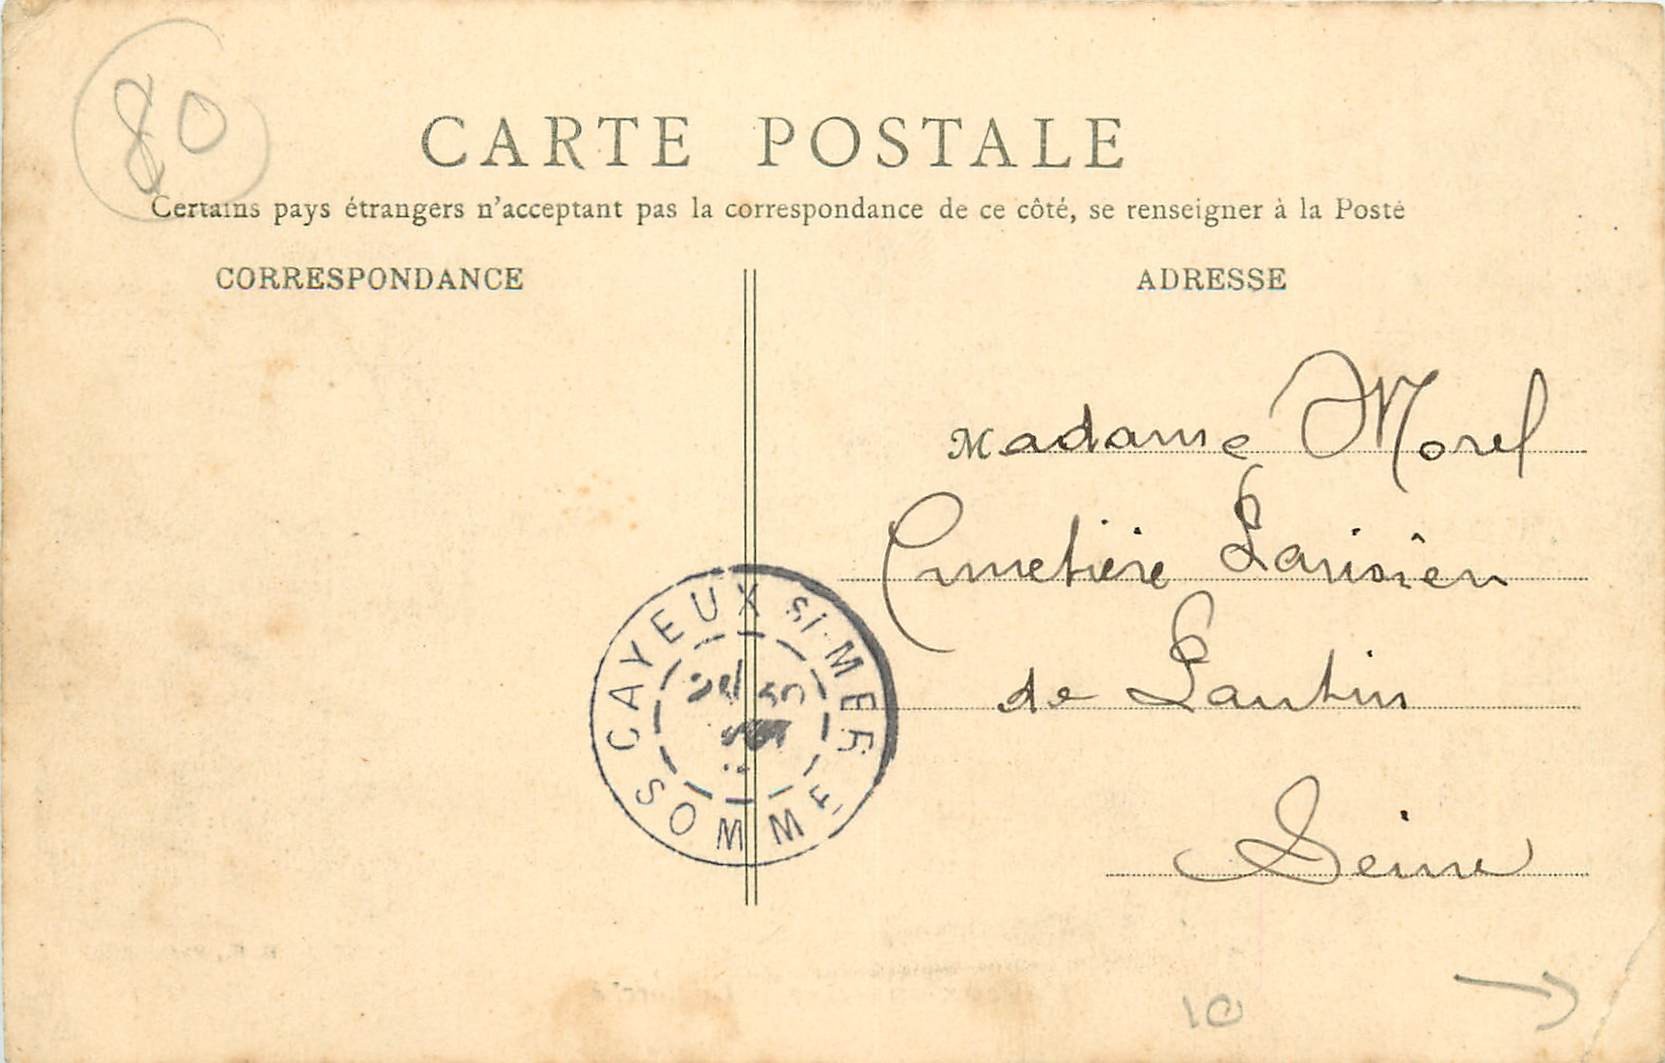 80
CARTE POSTALE
Certains pays étrangers n'acceptant pas la correspondance de ce côté, se renseigner à la Poste
CORRESPONDANCE
ADRESSE
Madame Morel
Cimetière Parisien
de Pantin
Seine
CAYEUX S/-MER
SOMME
10